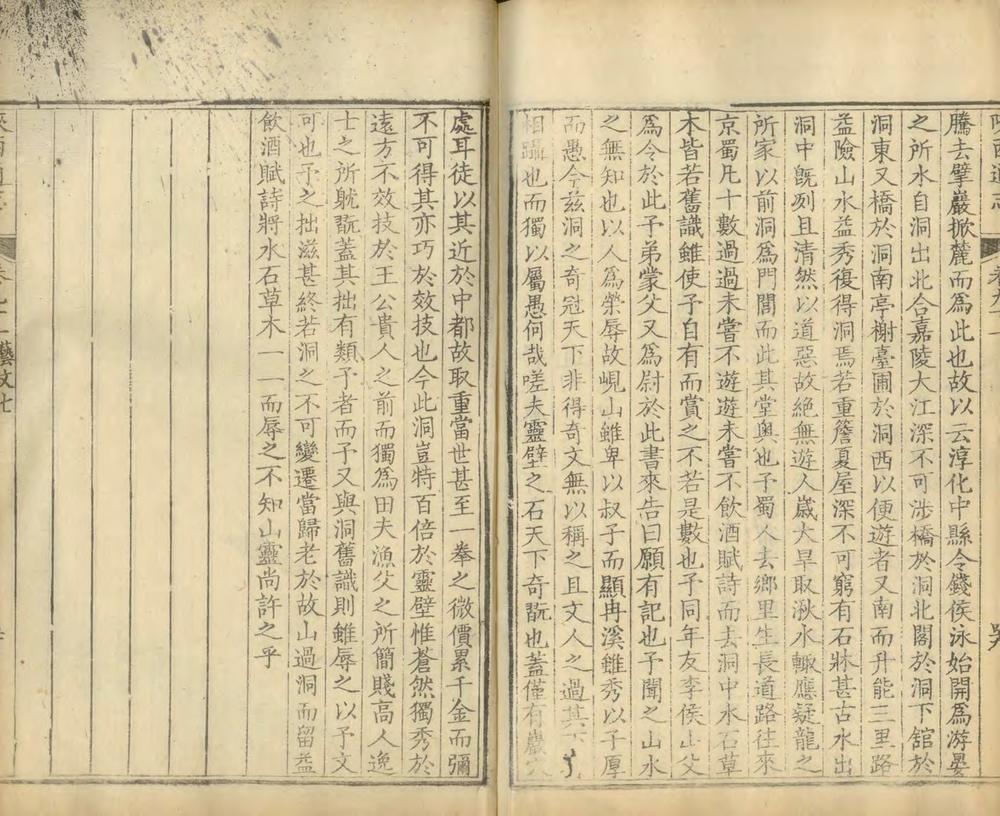 陝西通志 卷九十一
騰去擘巖掀麓而為此也故以云淳化中縣令錢侯泳始開為游晏
之所水自洞出北合嘉陵大江深不可涉橋於洞北閣於洞下舘於
洞東又橋於洞南亭榭臺圃於洞西以便遊者又南而升能三里路
益險山水益秀復得洞焉若重簷夏屋深不可窮有石牀甚古水出
洞中旣冽且清然以道惡故絶無遊人嵗大旱取湫水輙應疑龍之
所家以前洞為門閭而此其堂奥也予蜀人去鄉里生長道路往來
京蜀凡十數過過未嘗不遊遊未嘗不飲酒賦詩而去洞中水石草
木皆若舊識雖使予自有而賞之不若是數也予同年友李侯山父
為令於此予弟蒙父又為尉於此書來告曰願有記也予聞之山水
之無知也以人為榮辱故峴山雖卑以叔子而顯冉溪雖秀以子厚
而愚今兹洞之奇冠天下非得奇文無以稱之且文人之過其下
相躡也而獨以屬愚何哉嗟夫靈壁之石天下奇翫也蓋僅有巖穴
處耳徒以其近於中都故取重當世甚至一拳之微價累千金而彌
不可得其亦巧於效技也今此洞豈特百倍於靈壁惟蒼然獨秀於
遠方不效技於王公貴人之前而獨為田夫漁父之所簡賤高人逸
士之所躭翫蓋其拙有類予者而予又與洞舊識則雖辱之以予文
可也予之拙滋甚終若洞之不可變遷當歸老於故山過洞而留益
飲酒賦詩將水石草木一一而辱之不知山靈尚許之乎
陝西通志 卷九十一 藝文七